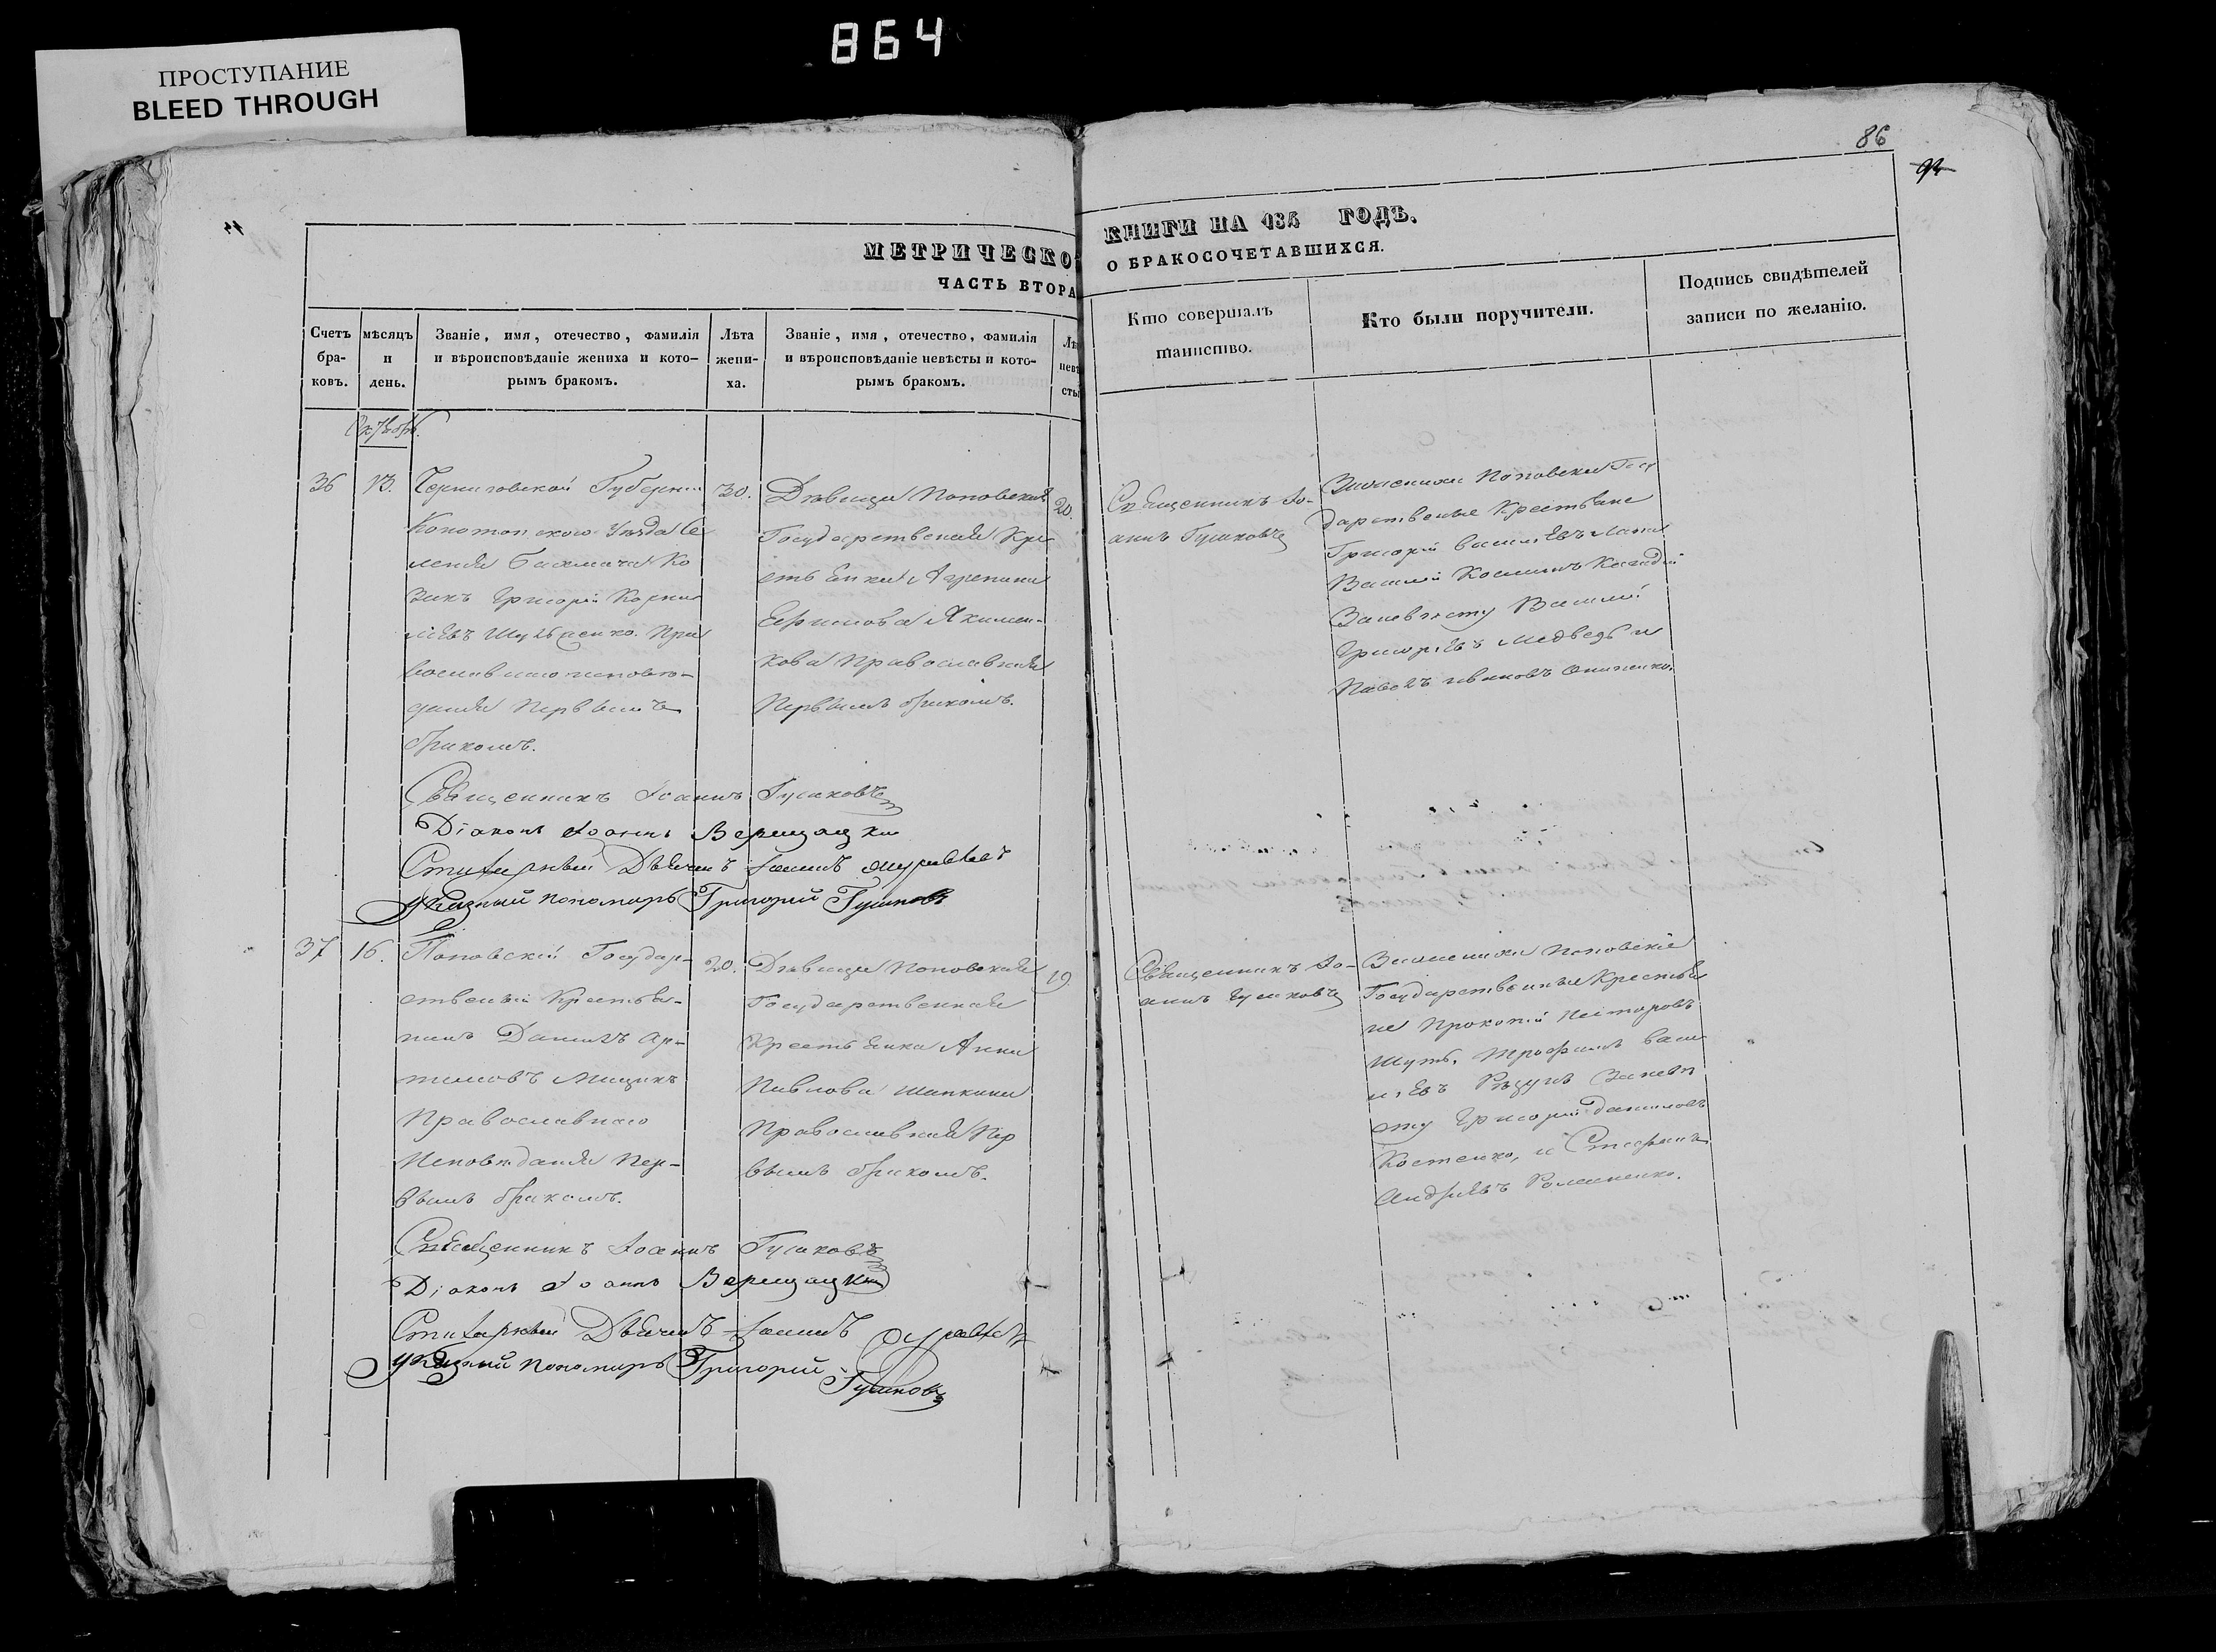 864
ПРОСТУПАНИЕ
BLEED THROUGH
86
МЕТРИЧЕСКО
ЧАСТЬ ВТОРА
КНИГИ НА 185 ГОДЪ.
О БРАКОСОЧЕТАВШИХСЯ.
Счетъ бра- ковъ.
мѣсяцъ и день.
Званіе, имя, отечество, фамилія
и вѣроисповѣданіе жениха и кото-
рымъ бракомъ.
Лѣта жени- ха.
Званіе, имя, отечество, фамилія
и вѣроисповѣданіе невѣсты и кото-
рымъ бракомъ.
Лѣ невѣ сты
Кто совершалъ
таинство.
Кто были поручители.
Подпись свидѣтелей
записи по желанію.
Октябрь.
36
13.
Черниговской Губерніи
Конотопскаго Уѣзда Се
ленія Бахмача Ко
закъ Григорій Корни
Пра
вославнаго исповѣ-
данія Первымъ
бракомъ.
30.
Дѣвица Поповская
Государственная Кре
стьянка Агрепина
Якимен-
кова Православная
Первымъ бракомъ.
20.
Священникъ Іо-
аннъ Гусаковъ
Поповскіе Госу
дарственные Крестьяне
Григорій
Василій
Заневѣсту Василій
Григоріевъ Медведь и
Павелъ Ивановъ
Священникъ Іоаннъ Гусаковъ
Діаконъ Іоаннъ Верещацкій
Стихарный Дьячекъ
Указный пономарь Григорій Гусаковъ
37
16.
Поповскій Государ-
ственный Крестья-
нинъ Данилъ Ар-
темовъ
Православнаго
Исповѣданія Пер-
вымъ бракомъ.
20.
Дѣвица Поповская
Государственная
Крестьянка Анна
Павлова Шапкина
Православная Пер
вымъ бракомъ.
19
Священникъ Іо-
аннъ Гусаковъ
Поповскіе
Государственные Крестья
не Прокопій Несторовъ
Шуть, Трофимъ Васи
ліевъ Заневѣ
сту Григорій Даниловъ
Костенко, и Стефанъ
Андріевъ Романенко.
Священникъ Іоаннъ Гусаковъ
Діаконъ Іоаннъ Верещацкій
Стихарный Дьячекъ
Указный пономарь Григорій
Гусаковъ